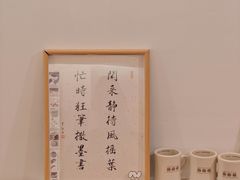 閑來靜待風搖葉
忙時狂筆撒墨書